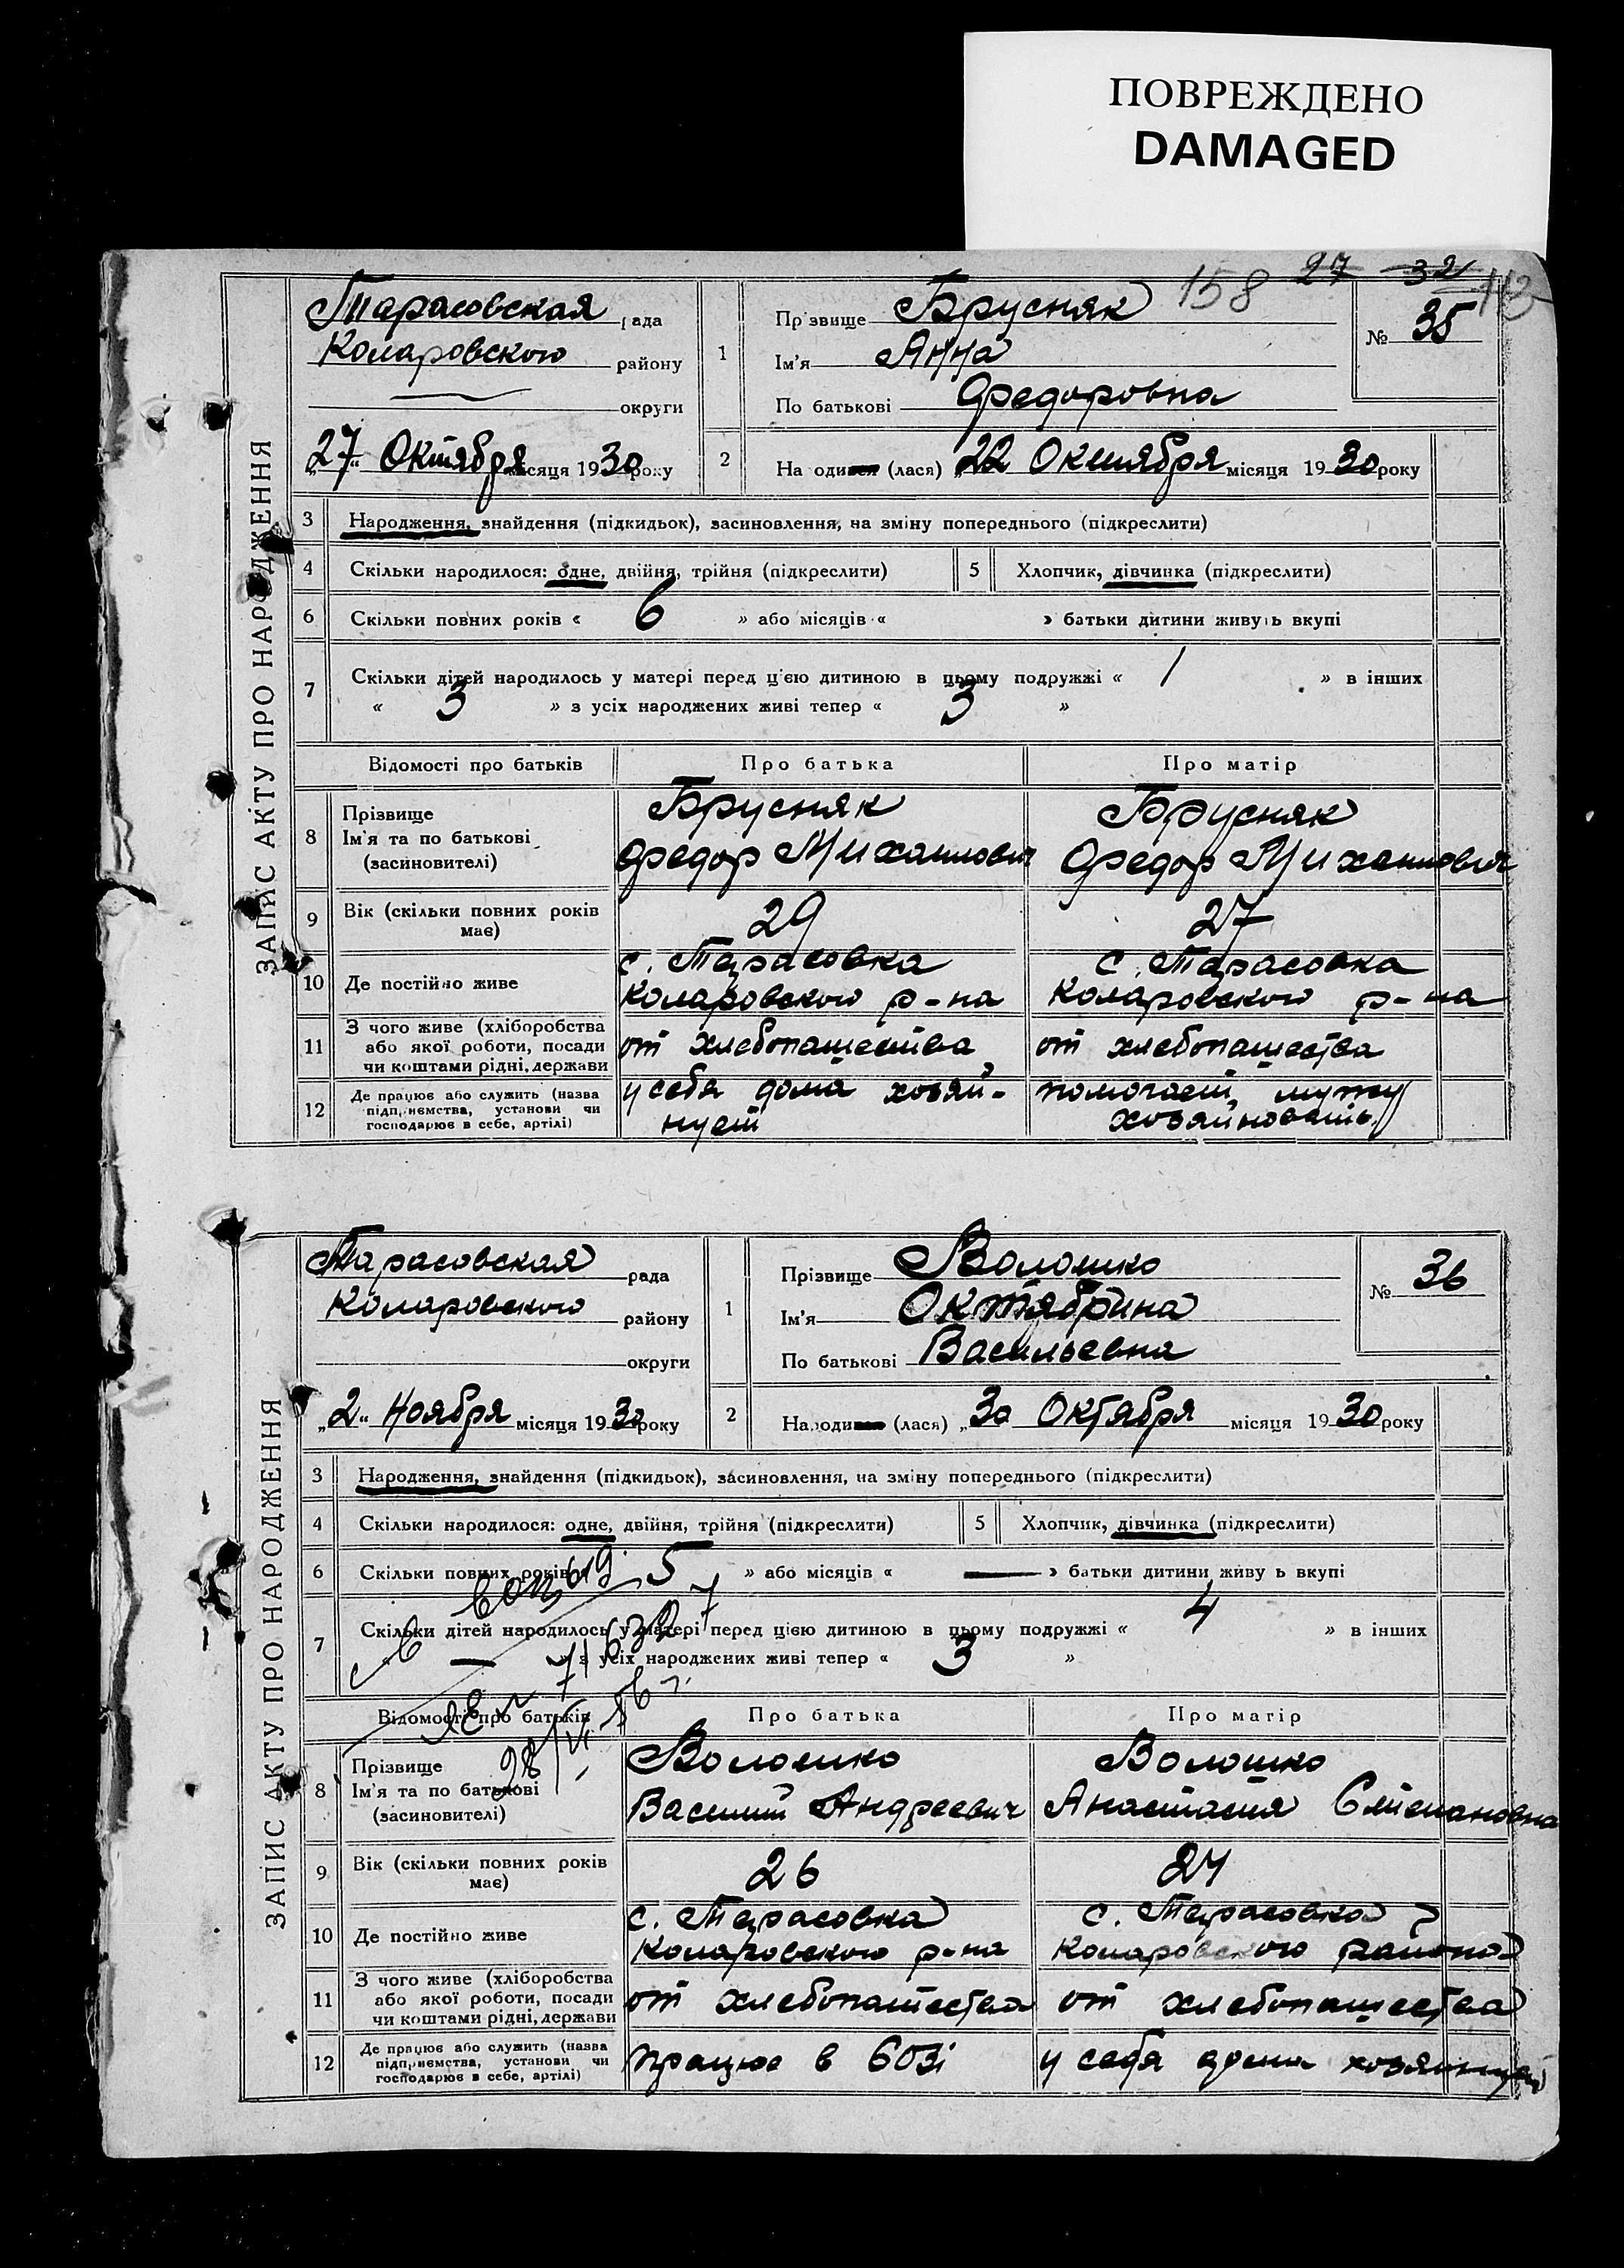 ПОВРЕЖДЕНО
DAMAGED
158 27 32
ЗАПИС АКТУ ПРО НАРОДЖЕННЯ
Тарасовская рада
Коларовского району
округи
„27“ Октября місяця 1930 року
1
Прізвище Брусняк
Ім'я Анна
По батькові Федоровна
№ 35
2
Народився (лася) „22 Октября місяця 1930 року
3 Народження, знайдення (підкидьок), засиновлення, на зміну попереднього (підкреслити)
4 Скільки народилося: одне, двійня, трійня (підкреслити) 5 Хлопчик, дівчинка (підкреслити)
6 Скільки повних років « 6 » або місяців « » батьки дитини живуть вкупі
7 Скільки дітей народилось у матері перед цією дитиною в цьому подружжі « 1 » в інших
« 3 » з усіх народжених живі тепер « 3 »
Відомості про батьків Про батька Про матір
8 Прізвище
Ім'я та по батькові
(засиновителі)
Брусняк
Федор Михаилович
Брусняк
Федор Михаилович
9 Вік (скільки повних років
має)
29
27
10 Де постійно живе
с. Тарасовка
Коларовского р-на
с. Тарасовка
Коларовского р-на
11 З чого живе (хліборобства
або якої роботи, посади
чи коштами рідні, держави
от хлебопашества
от хлебопашества
12 Де працює або служить (назва
підприємства, установи чи
господарює в себе, артілі)
у себя дома хозяй-
нует
помогает мужу
хозяйновать
ЗАПИС АКТУ ПРО НАРОДЖЕННЯ
Тарасовская рада
Коларовского району
округи
„2“ Ноября місяця 1930 року
1
Прізвище Волошко
Ім'я Октябрина
По батькові Васильевна
№ 36
2
Народився (лася) „30 Октября місяця 1930 року
3 Народження, знайдення (підкидьок), засиновлення, на зміну попереднього (підкреслити)
4 Скільки народилося: одне, двійня, трійня (підкреслити) 5 Хлопчик, дівчинка (підкреслити)
6 Скільки повних років « 5 » або місяців « — » батьки дитини живуть вкупі
7 Скільки дітей народилось у матері перед цією дитиною в цьому подружжі « 4 » в інших
« — » з усіх народжених живі тепер « 3 »
Відомості про батьків Про батька Про матір
8 Прізвище
Ім'я та по батькові
(засиновителі)
Волошко
Василий Андреевич
Волошко
Анастасия Степановна
9 Вік (скільки повних років
має)
26
24
10 Де постійно живе
с. Тарасовка
Коларовского р-на
с. Тарасовка
Коларовского района
11 З чого живе (хліборобства
або якої роботи, посади
чи коштами рідні, держави
от хлебопашества
от хлебопашества
12 Де працює або служить (назва
підприємства, установи чи
господарює в себе, артілі)
працює в созі
у себя дома хозяйнует